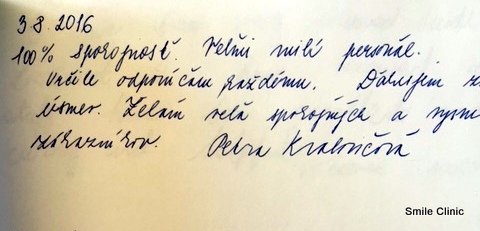 3.8.2016
100% spokojnosť. Veľmi milí personál.
Určite odporúčam každému. Ďakujem z
úsmev. Želám veľa spokojných a
zákazníkov. Petra Kraľovičová
Smile Clinic